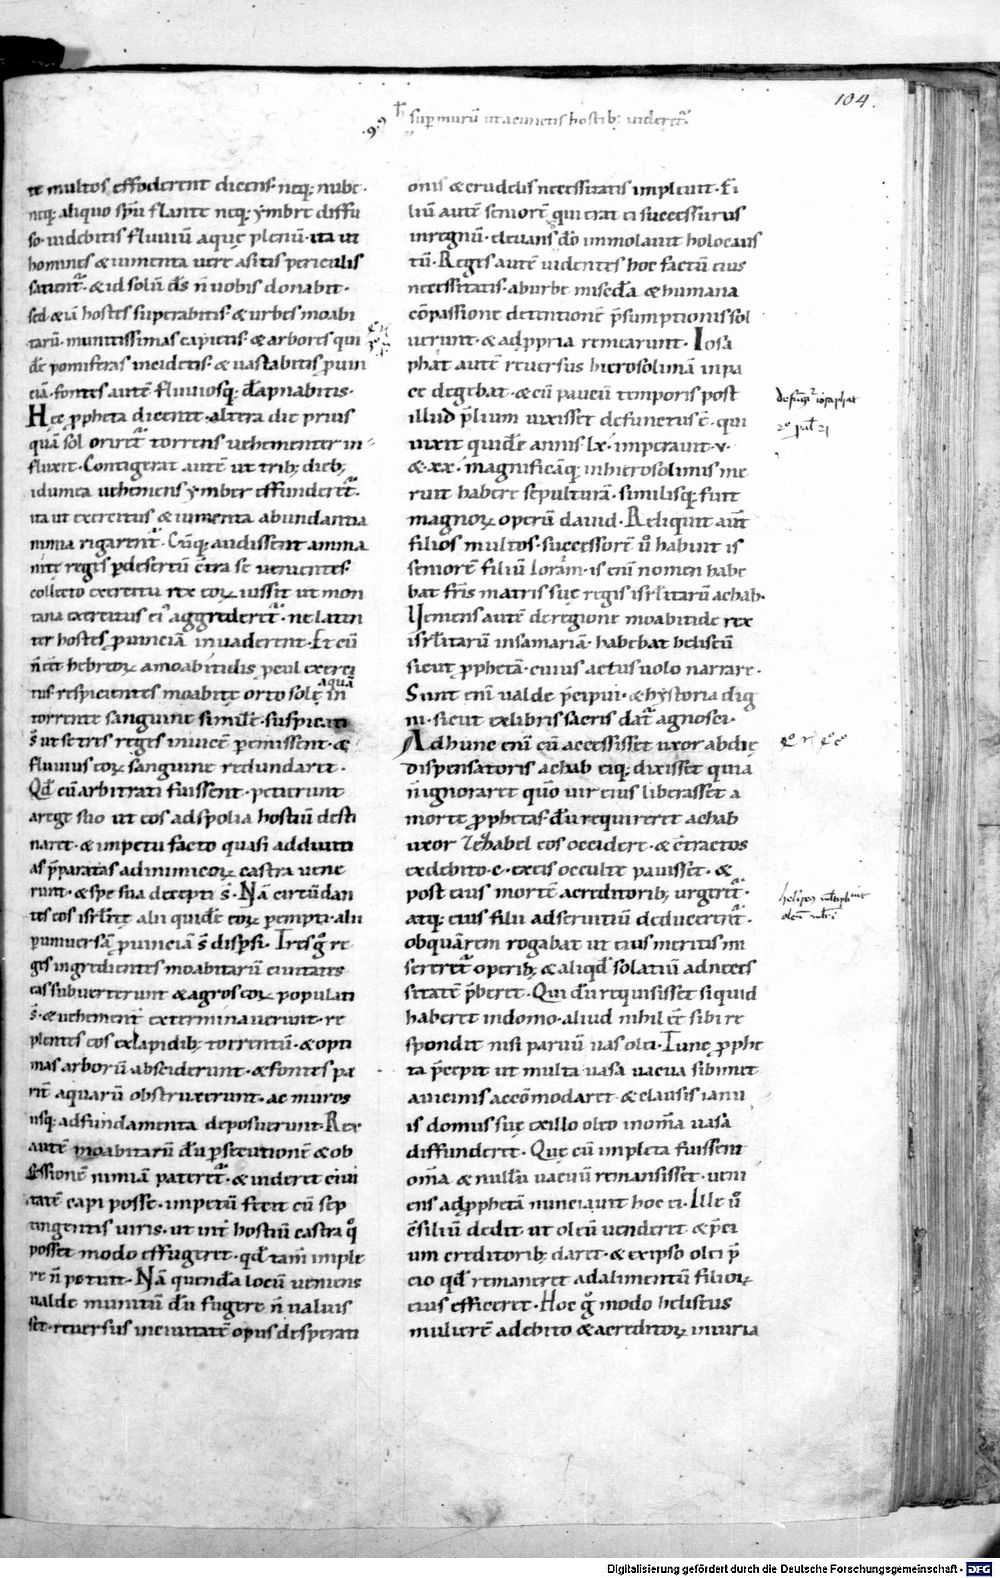 104.
ħ sup murū ut a cunctis hostib; uideret᷑.
te multos effoderent dicens· neq; nube·
neq; aliquo spū flante neq; ymbre diffu
so· uidebitis fluuiū aquę plenū· ita ut
homines & iumenta uere a sitis periculis
saluent᷑· & id solū dš n̄ uobis donabit·
sed & iā hostes superabitis· & urbes moabi
tarū· munitissimas capietis· & arbores qui
dē pomiferas incidetis· & uastabitis ꝓuin
ciā· fontes autē fluuiosq; dāpnabitis·
Hec ꝓpheta dicente· altera die prius
quā sol oriret᷑ torrens uehementer in-
fluxit· Contigerat autē ut trib; dieb;
idumea uehemens ymber effunderet᷑·
ita ut exercitus & iumenta abundantia
nimia rigarent᷑· Cūq; audissent amma
nite reges ꝑ desertū c̄tra se uenientes·
collecto exercitu rex eoꝝ iussit ut mon
tana exercitus ei᷒ aggrederet᷑· ne laten
ter hostes ꝓuinciā inuaderent· Et cū
n̄ eēt hebreoꝝ a moabitidis ꝓcul exerci
tus· respicientes moabitę orto sole aquā in
torrente sanguine similē· suspicati
s̄ ut se tres reges inuicē ꝑemissent· &
fluuius eoꝝ sanguine redundaret·
Qd̄ cū arbitrati fuissent· petierunt
a rege suo ut eos ad spolia hostiū desti
naret· & impetu facto quasi ad diuiti
as p̄paratas ad inimicoꝝ castra uene
runt· & spe sua decepti s̄· Nā circūdan
tes eos isrl̄itę alii quidē eoꝝ ꝑempti· alii
ꝑ uniuersā ꝓuinciā s̄ dispsi· Tres g̊ re
ges ingredientes moabitarū ciuitates
eas subuerterunt & agros eoꝝ populati
s̄· & uehement᷑ exterminauerunt· re
plentes eos ex lapidib; torrentū· & opti
mas arborū absciderunt· & fontes pa
rit᷑ aquarū obstruxerunt· ac muros
usq; ad fundamenta deposuerunt· Rex
autē moabitarū dū ꝑsecutionē & ob
sessionē nimiā pateret᷑· & uideret ciui
tatē capi posse· impetū fecit cū sep
tingentis uiris· ut int᷑ hostiū castra q̊
posset modo effugeret· qd̄ tam̄ imple
re n̄ potuit· Nā quendā locū ueniens
ualde munitū dū fugere n̄ ualuis
set· reuersus in ciuitatē opus desperati
onis & crudelis necessitatis impleuit· Fi
liū autē seniorē qui erat ei successurus
in regnū· eleuans dō immolauit holocaus
tū· Reges autē uidentes hoc factū eius
necessitatis· ab urbe misedā & humana
cōpassione detentionē p̄sumptionis sol
uerunt· & ad ꝓpria remearunt· Iosa
phat autē reuersus hierosolimā in pa
ce degebat· & cū paucū temporis post
illud p̄lium uixisset defunctus ē· qui
uixit quidē annis lx· imperauit v·
& xx· magnificāq; in hierosolimis me
ruit habere sepulturā· similisq; fuit
magnoꝝ operū dauid· Reliquit aut̄
filios multos· successorē ů habuit is
seniorē filiū Ioram· is eni nomen habe
bat fris matris suę regis isrl̄itarū achab·
Veniens autē de regione moabitide rex
isrl̄itarū in samariā· habebat heliseū
sicut ꝓphetā· cuius actus uolo narrare·
Sunt eni ualde p̄cipui· & hystoria dig
ni· sicut ex libris sacris dat᷑ agnosci·
Ad hunc eni cū accessisset uxor abdię
dispensatoris achab eiq; dixisset quia
n̄ ignoraret quō uir eius liberasset a
morte ꝓphetas· dū requireret achab
uxor Iezhabel eos occidere· & c̄tractos
ex debito· c· ex eis occulte pauisset· &
post eius mortē a creditorib; urgeret᷑·
atq; eius filii ad seruitiū deducerent᷑·
ob quā rem rogabat ut eius meritis mi
sereret᷑ operib; & aliqd̄ solatiū ad neces
sitatē p̄beret· Qui dū requisisset siquid
haberet in domo· aliud nihil eē sibi re
spondit nisi paruū uas olei· Tunc ꝓphe
ta p̄cepit ut multa uasa uacua sibimet
a uicinis accōmodaret & clausis ianu
is domus suę ex illo oleo in om̄a uasa
diffunderet· Quę cū impleta fuissent
om̄a & nullū uacuū remansisset· ueni
ens ad ꝓphetā nunciauit hoc ei· Ille ů
c̄siliū dedit ut oleū uenderet & p̄ci
um creditorib; daret· & ex ipso olei p̄
cio qd̄ remaneret ad alimentū filioꝝ
eius efficeret· Hoc g̊ modo heliseus
mulierē a debito & a creditoꝝ iniuria
defungit᷑ iosaphat
2º par̄ 21
helise᷒ multiplicauit
oleū mulieri
Digitalisierung gefördert durch die Deutsche Forschungsgemeinschaft - DFG